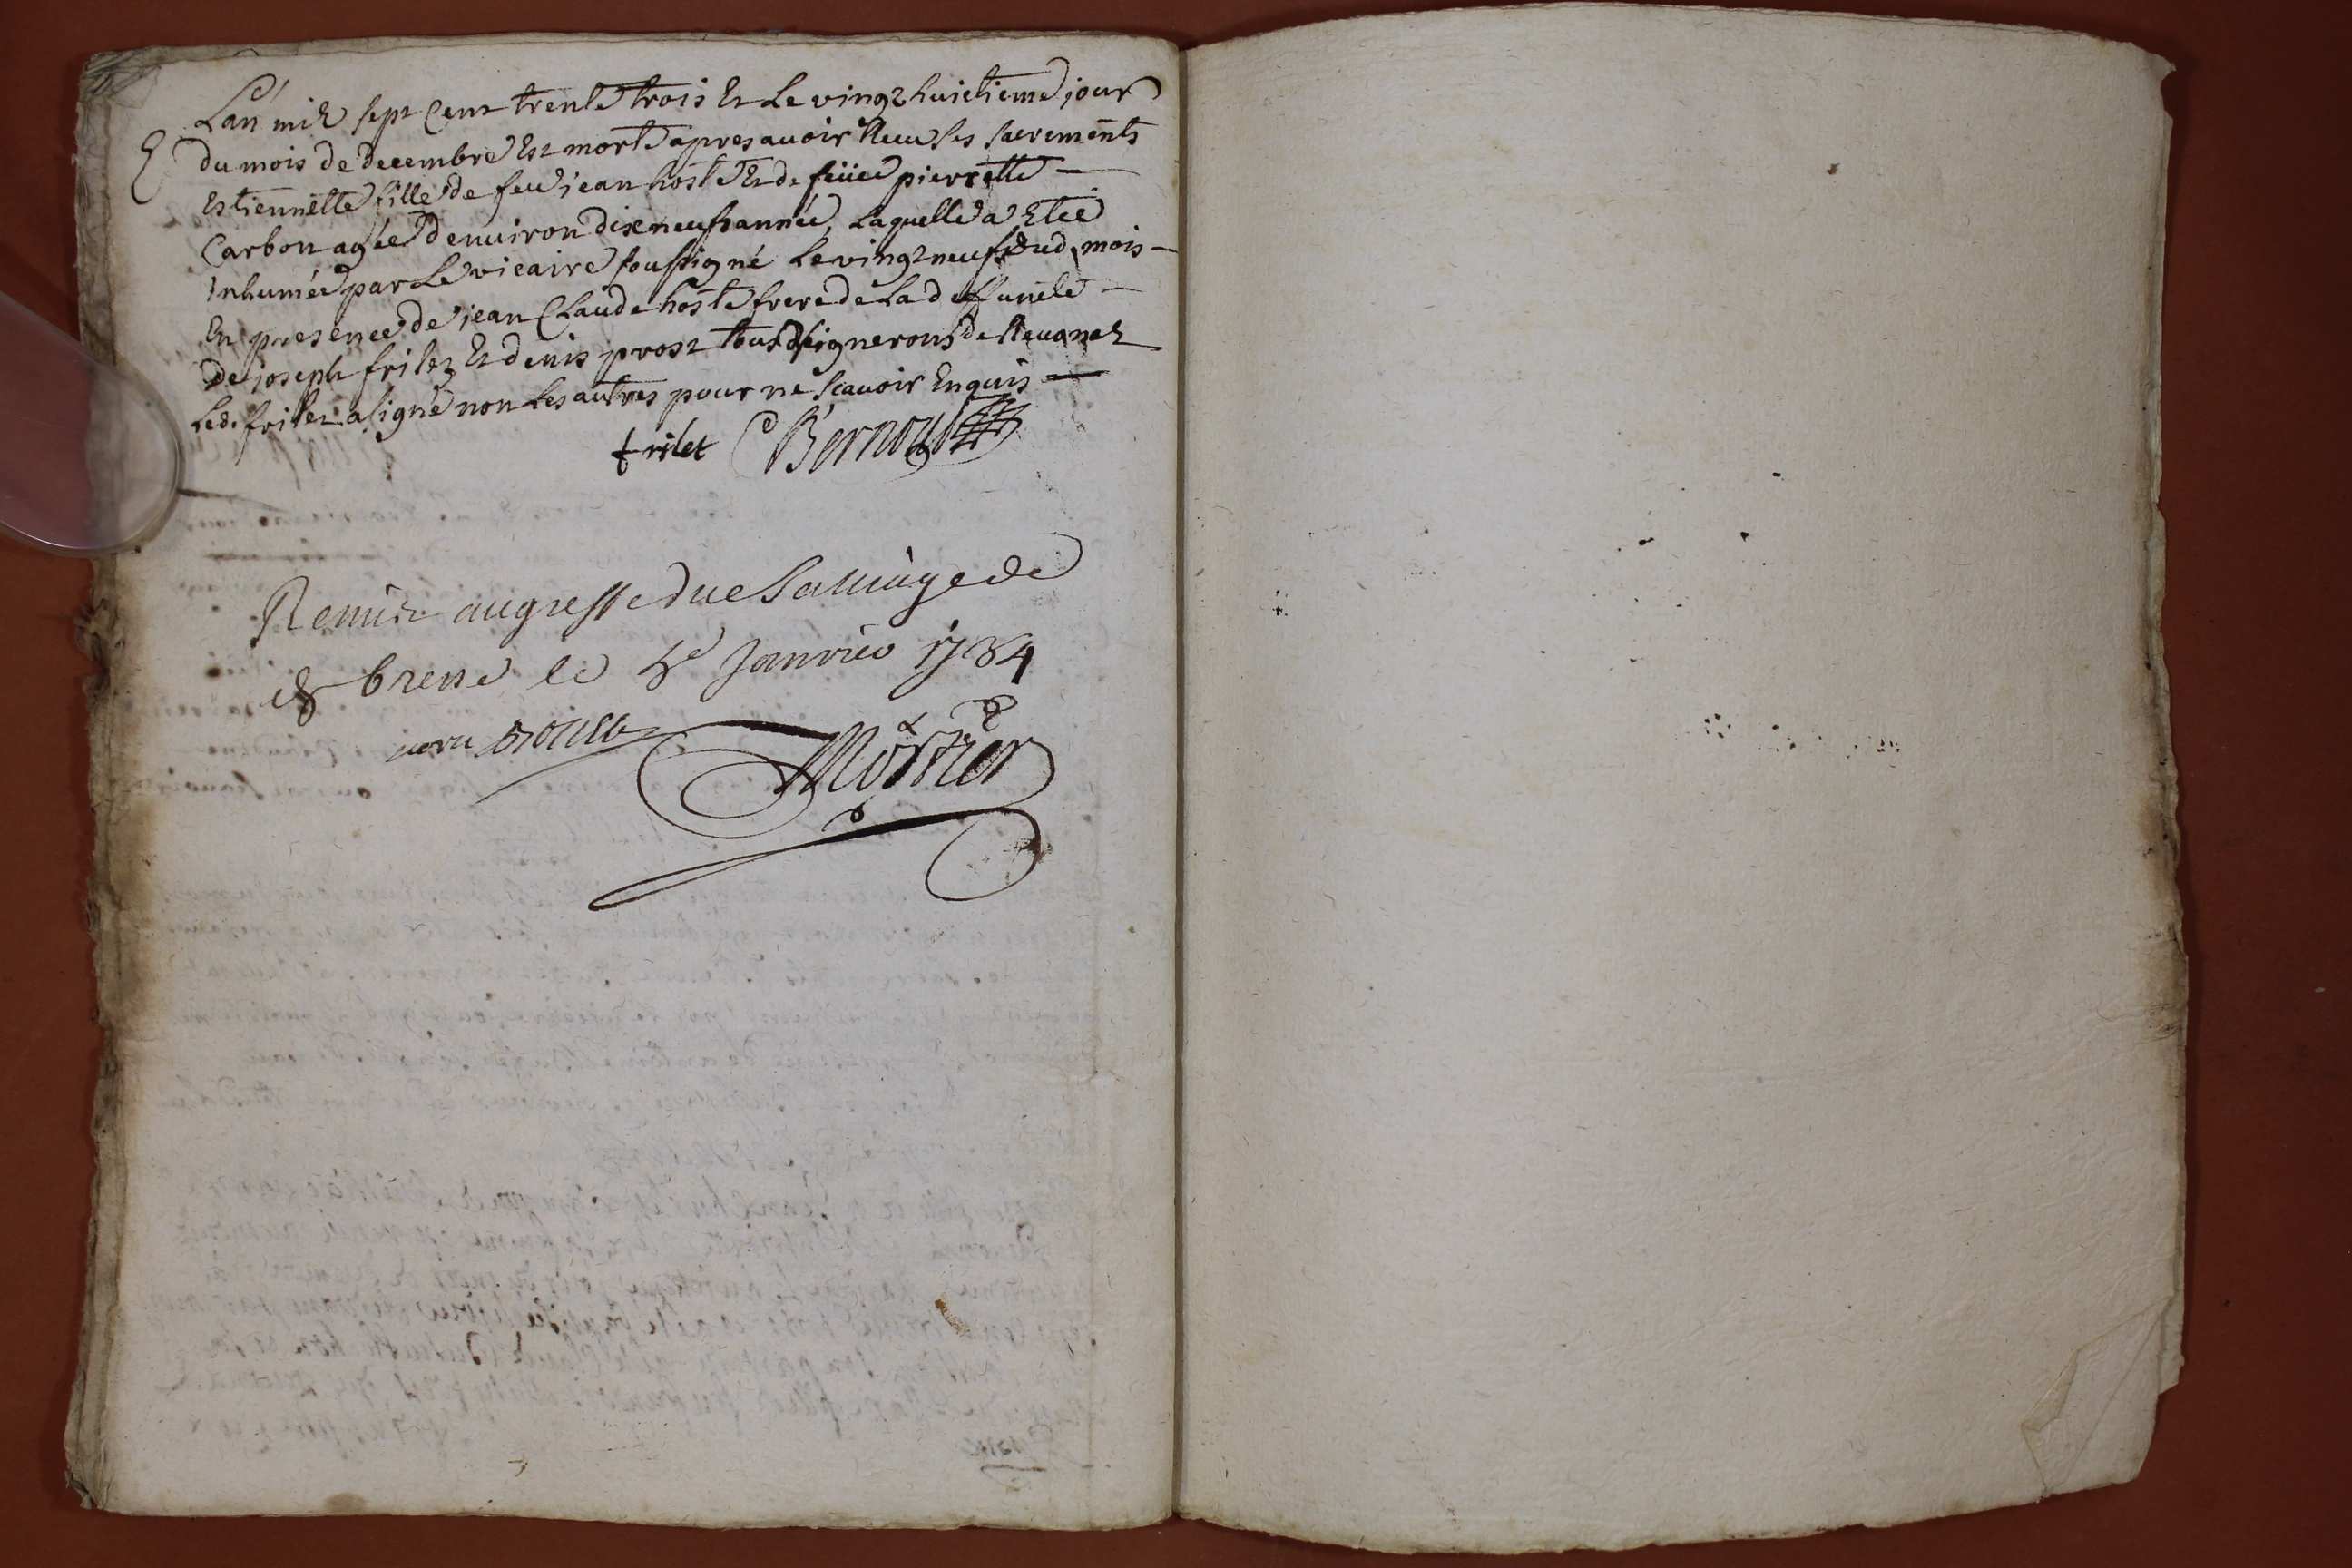 Lan mil sept Cent trente trois Et Le vingt huictieme jour
du mois de decembre Est morte apres avoir Receu les sacrements
Estiennette fille de feu jean hoste Et de feüe pierrette
Carbon agée denuiron dixneuf année, Laquelle a Etée
Inhumée par Le vicaire soussigné Le vingt neuf dud, mois
En presence de jean Claude hoste frere de La deffuncte
De joseph frilet Et denis prost tous vignerons de
Led. frilet a signé non Les autres pour ne scavoir Enquis
frilet Bernou
Remis au greffe du
bresse le janvier 1734
Mortier